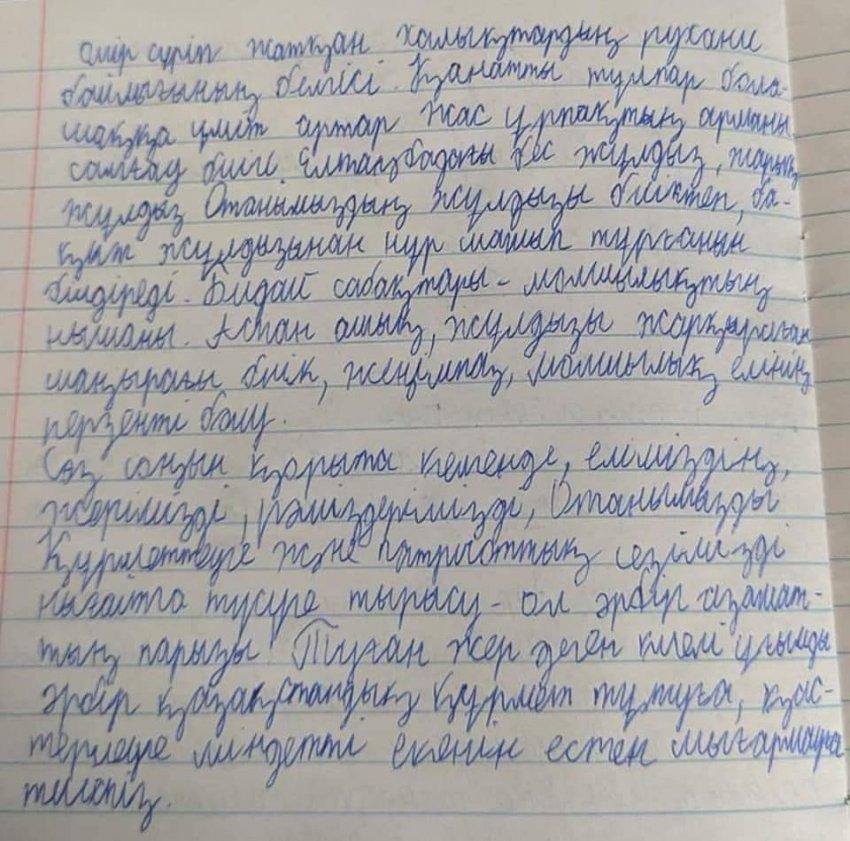 өмір сүріп жатқан халықтардың рухани
байлығының белгісі. Қанатты тұлпар бола-
шаққа үміт артар жас ұрпақтың арманы
самғау биігі. Елтаңбадағы бес жұлдыз, жарық
жұлдыз Отанымыздың жұлдызы биіктеп, ба-
қыт жұлдызынан нұр шашып тұрғанын
білдіреді. Бидай сабақтары - молшылықтың
нышаны. Аспан ашық, жұлдызы жарқыраған
шаңырағы биік, жеңімпаз, молшылық елінің
перзенті болу.
Сөз соңын қорыта келгенде, еліміздің,
жерімізді, рәміздерімізді, Отанымызды
Құрметтеуге және патриоттық сезімізді
нығайта түсуге тырысу - ол әрбір азамат-
тың парызы! Туған жер деген киелі ұғымды
әрбір қазақстандық құрмет тұтуға, қас-
терлеуге міндетті екенін естен шығармауға
тиіспіз.